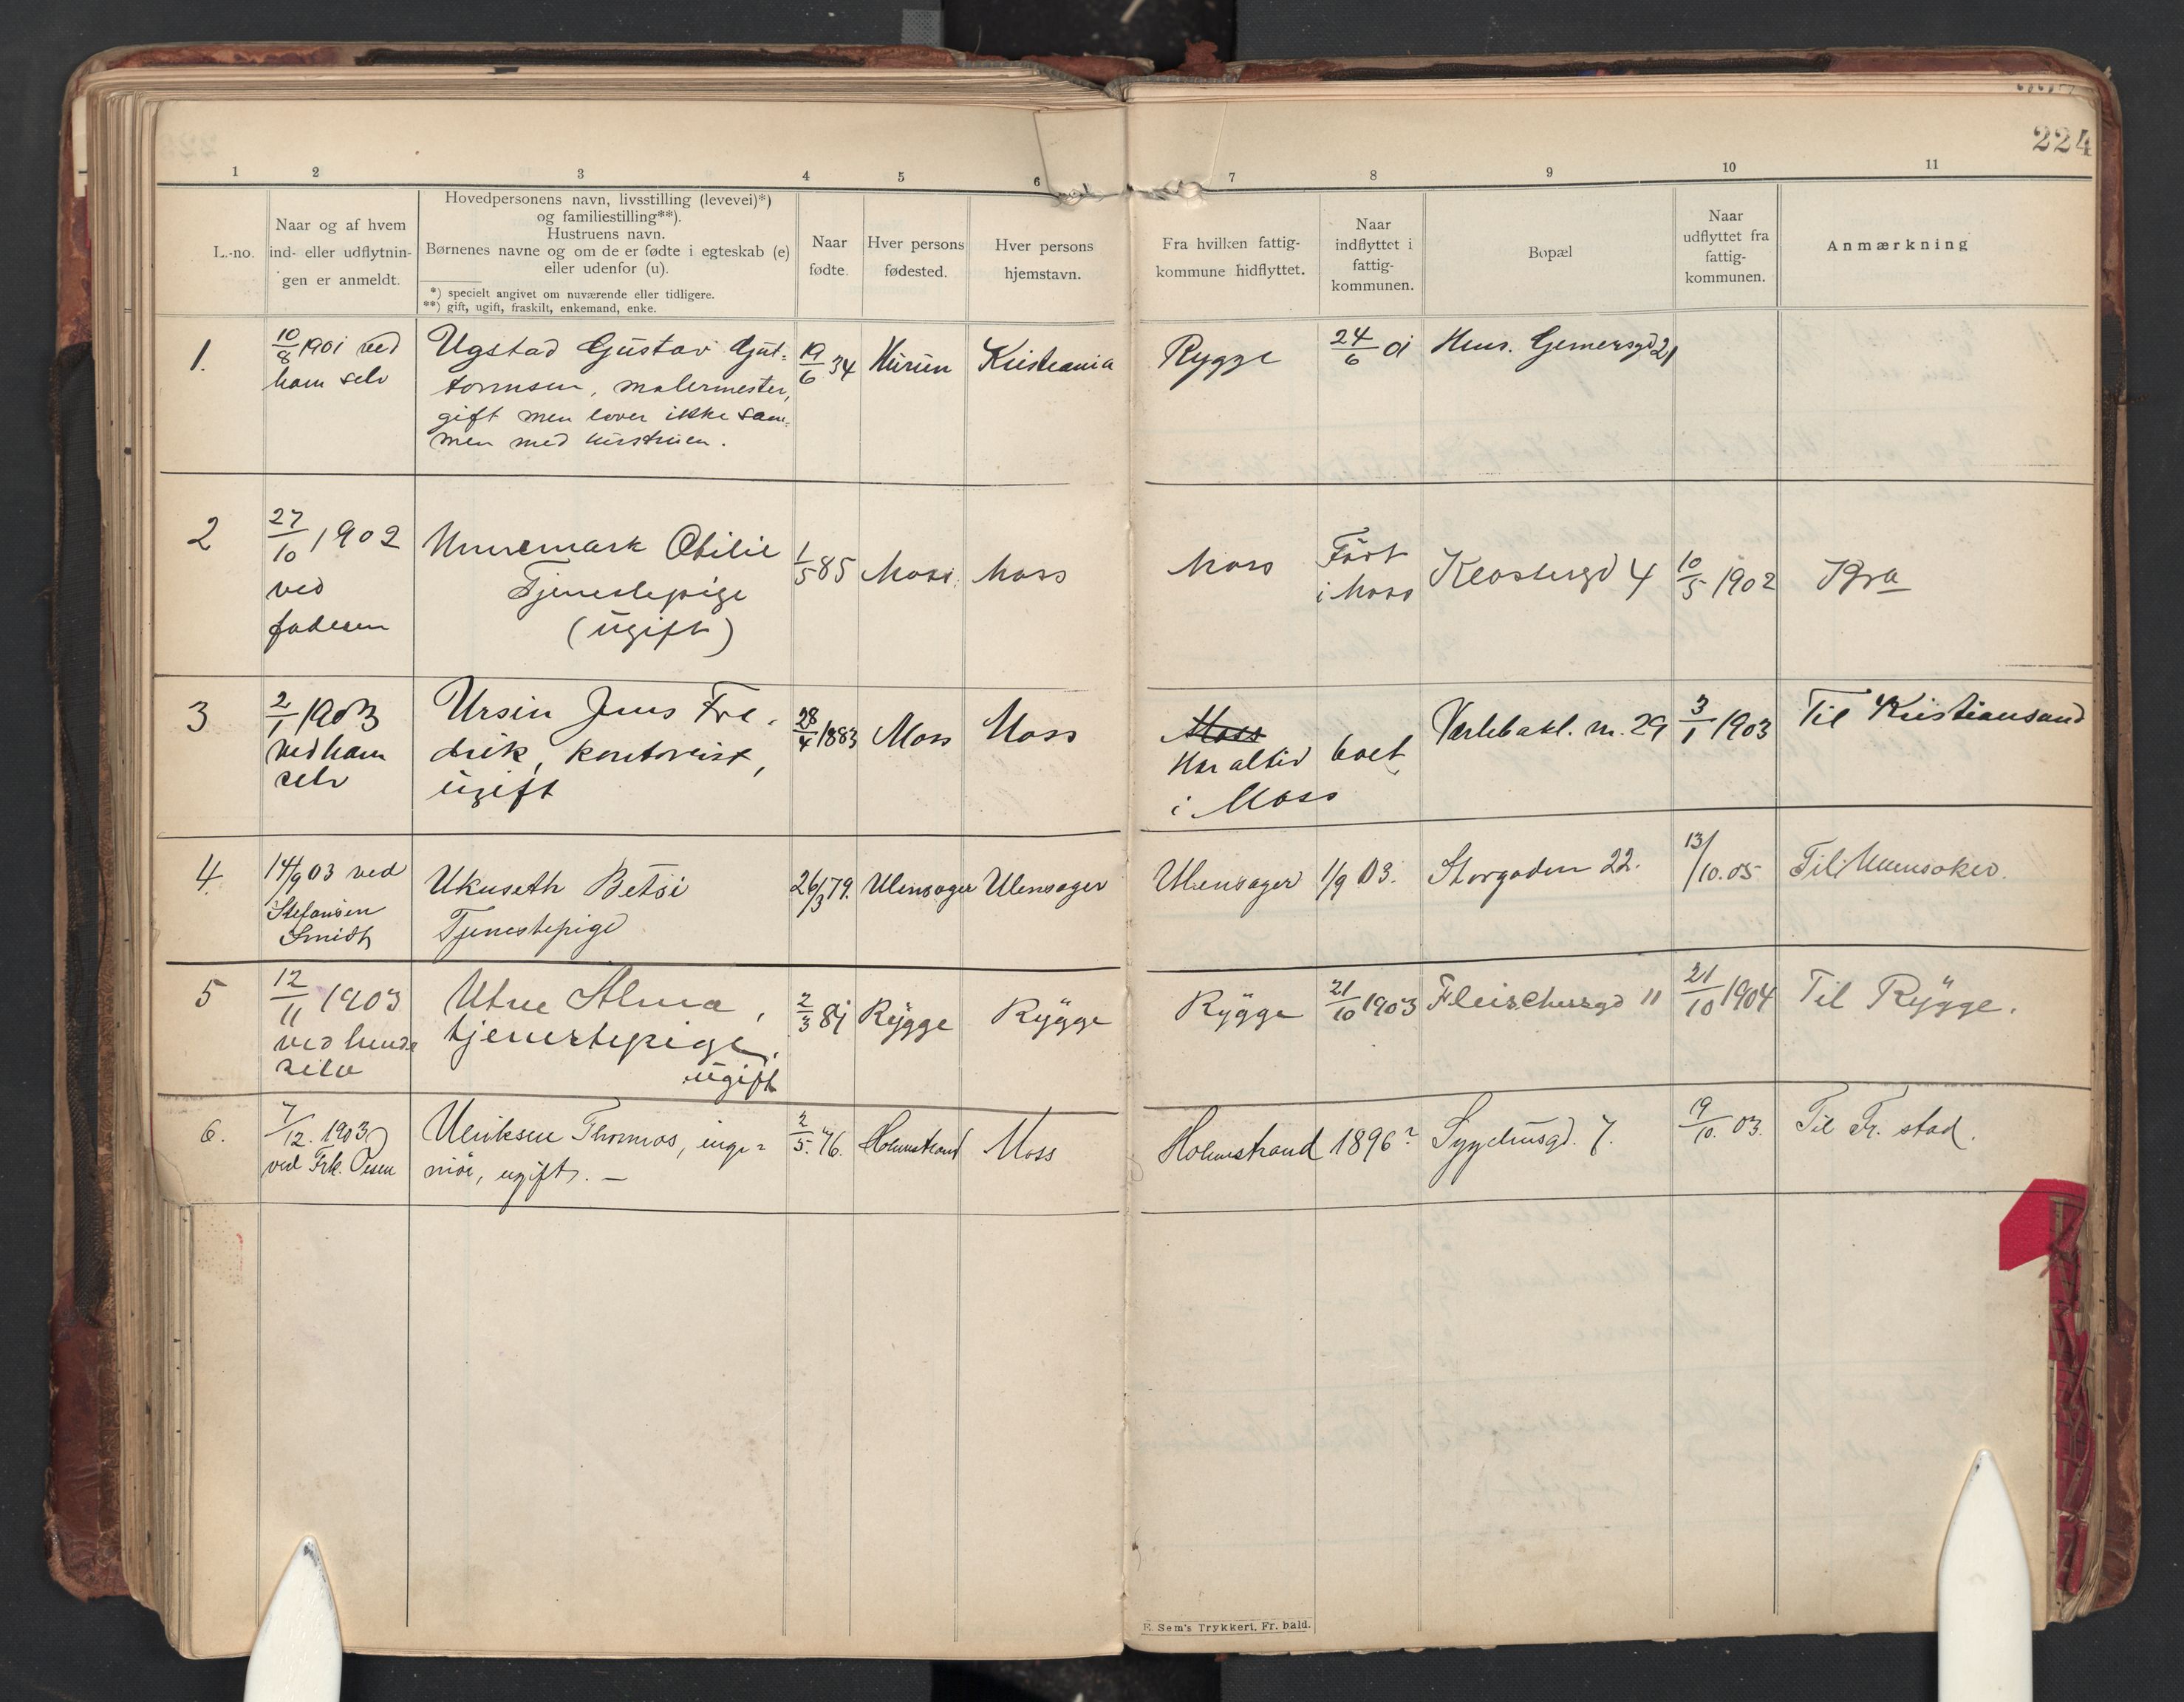 224
1 2 3 4 5 6 7 8 9 10 11
L.-no.
Naar og af hvem
ind- eller udflytnin-
gen er anmeldt.
Hovedpersonens navn, livsstilling (levevei)*)
og familiestilling**).
Hustruens navn.
Børnenes navne og om de er fødte i egteskab (e)
eller udenfor (u).
*) specielt angivet om nuværende eller tidligere.
**) gift, ugift, fraskilt, enkemand, enke.
Naar
fødte.
Hver persons
fødested.
Hver persons
hjemstavn.
Fra hvilken fattig-
kommune hidflyttet.
Naar
indflyttet i
fattig-
kommunen.
Bopæl
Naar
udflyttet fra
fattig-
kommunen.
Anmærkning
1.
10/8 1901 ved
ham selv
Ugstad Gustav Gut-
tormsen, malermester,
gift men lever ikke sam-
men med hustruen.
19/6 34
Hurum
Kristiania
Rygge
24/6 01
Hens. Gernersgd 21
2
27/10 1902
ved
faderen
Unnemark Otilie
Tjenestepige
(ugift)
1/5 85
Moss
Moss
Moss
Født
i Moss
Klostergd 4
10/5 1902
Kra
3
2/1 1903
ved ham
selv
Ursin Jens Fre-
drik, kontorist,
ugift
28/4 1883
Moss
Moss
Moss
Har altid boet
i Moss
Varlebakk. n. 29
3/1 1903
Til Kristiansand
4.
14/9 03 ved
Stefansen
Smidt
Ukuseth Betsi
Tjenestepige
26/3 79.
Ulensager
Ulensager
Ulensager
1/9 03.
Storgaden 22.
13/10.05
Til Ullensaker.
5
12/11 1903
ved hende
selv
Utne Alma,
tjenestepige,
ugift
2/3 81
Rygge
Rygge
Rygge
21/10 1903
Fleischersgd 11
21/10 1904
Til Rygge.
6.
7/12. 1903
ved Frk. Olsen
Ulriksen Thomas, inge-
niør, ugift. —
2/5. 76.
Holmestrand
Moss
Holmestrand
1896?
Sygehusgd. 7.
19/10. 03.
Til Fr. stad.
E. Sem's Trykkeri, Fr. hald.